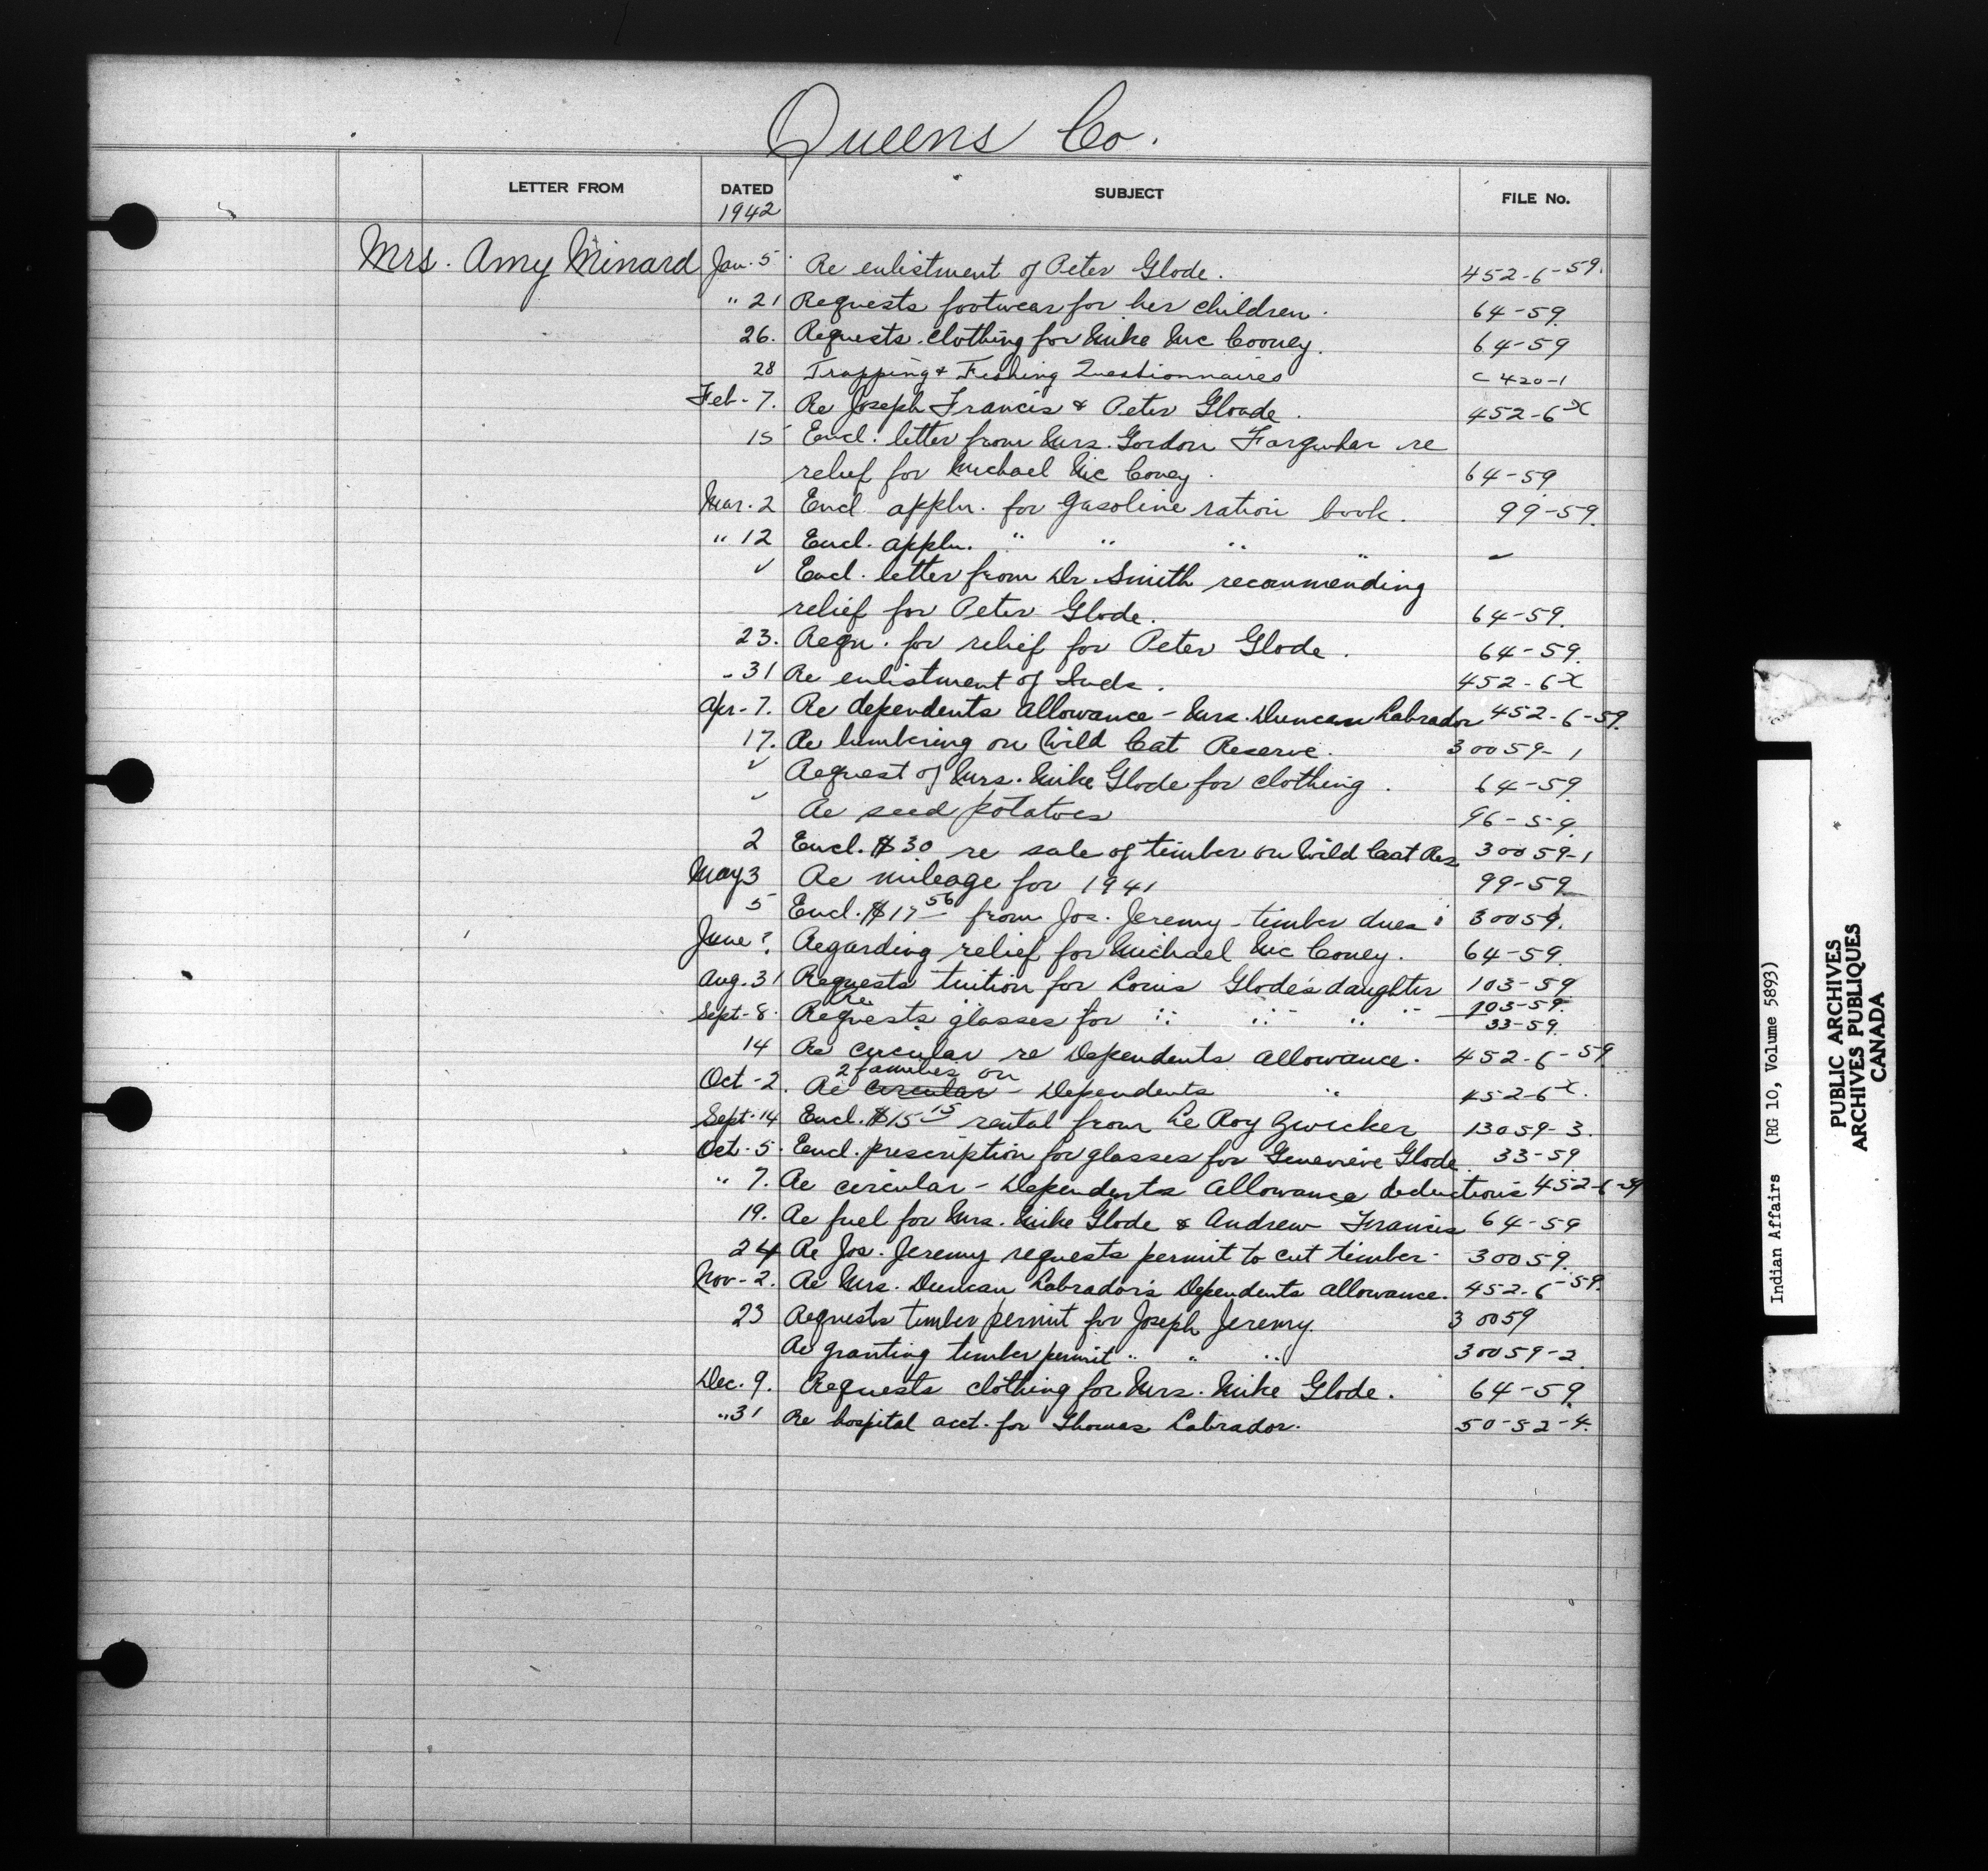 Queens Co.
LETTER FROM DATED SUBJECT FILE No.
1942
Mrs. Amy Minard Jan. 5 Re enlistment of Peter Glode. 452-6-59.
" 21 Requests footwear for her children. 64-59
26. Requests clothing for Mike Mc Cooney. 64-59
28 Trapping & Fishing Questionnaires C 420-1
Feb-7. Re Joseph Francis & Peter Gloade. 452-6-X
15 Encl. letter from Mrs. Gordon Farquhar re
relief for Michael Mc Coney. 64-59
Mar. 2 Encl. appln. for gasoline ration book. 99-59.
" 12 Encl. appln. " " " " ✓
✓ Encl. letter from Dr. Smith recommending
relief for Peter Glode. 64-59.
23. Reqn. for relief for Peter Glode. 64-59.
" 31 Re enlistment of Inds. 452-6-X
Apr-7. Re dependents allowance - Mrs. Duncan Labrador 452-6-59.
17. Re lumbering on Wild Cat Reserve. 30059-1
✓ Request of Mrs. Mike Glode for clothing. 64-59.
✓ Re seed potatoes 96-59.
2 Encl. $30 re sale of timber on Wild Cat Res 30059-1
May 3 Re mileage for 1941 99-59
5 Encl. $17 56 from Jos. Jeremy - timber dues 30059.
June ? Regarding relief for Michael Mc Coney. 64-59.
Aug. 31 Requests tuition for Louis Glode's daughter 103-59
Re
Sept-8. Requests glasses for " " " " 103-59.
33-59.
14 Re circular re Dependents allowance. 452-6-59
2 families on
Oct-2. Re circular - Dependents " 452-6-X.
Sept. 14 Encl. $15 15 rental from Le Roy Zwicker 13059-3.
Oct. 5. Encl. prescription for glasses for Genevieve Glode. 33-59.
" 7. Re circular - Dependents Allowance deductions 452-6-59
19. Re fuel for Mrs. Mike Glode & Andrew Francis 64-59
24 Re Jos. Jeremy requests permit to cut timber. 30059.
Nov-2. Re Mrs. Duncan Labrador's Dependents allowance. 452-6-59.
23 Requests timber permit for Joseph Jeremy. 30059
Re granting timber permit " " " 30059-2.
Dec. 9. Requests clothing for Mrs. Mike Glode. 64-59.
" 31 Re hospital acct. for Thomas Labrador. 50-52-4.
Indian Affairs (RG 10, Volume 5893)
PUBLIC ARCHIVES
ARCHIVES PUBLIQUES
CANADA